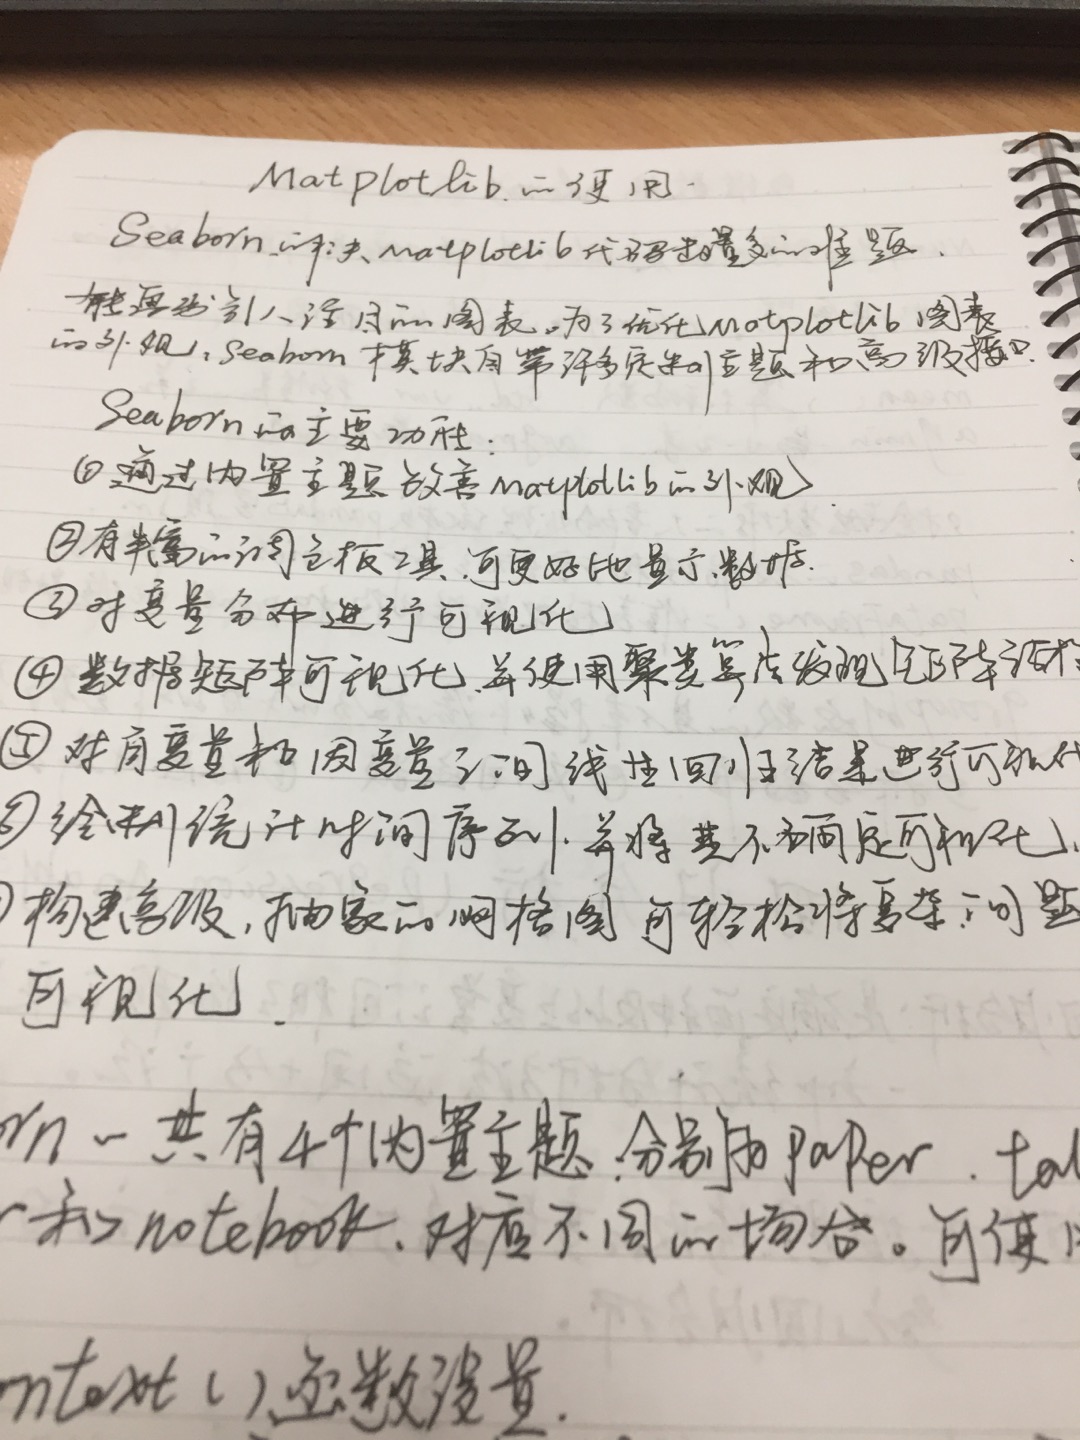 Matplotlib的使用.
Seaborn的解决Matplotlib代码量多的难题.
能画出引人注目的图表。为了优化Matplotlib图表
的外观,Seaborn模块自带许多定制主题和高级接口.
Seaborn的主要功能:
①通过内置主题改善Matplotlib的外观
②有丰富的调色板工具,可更好地显示数据.
③对变量分布进行可视化
④数据矩阵可视化,并使用聚类算法发现矩阵结构
⑤对自变量和因变量之间线性回归结果进行可视化
绘制统计时间序列,并将其不确定可视化,
构建高级,抽象的网格图可轻松将复杂问题
可视化.
rn一共有4个内置主题,分别为paper,tal
r和notebook,对应不同的场合。可使用
ontext()函数设置.